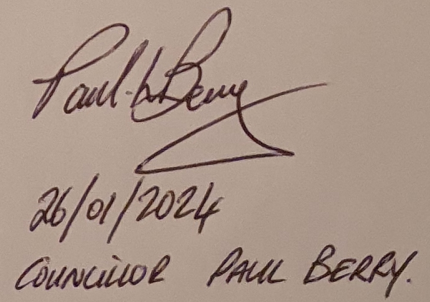 Paul W Berry
26/01/2024
COUNCILLOR PAUL BERRY.